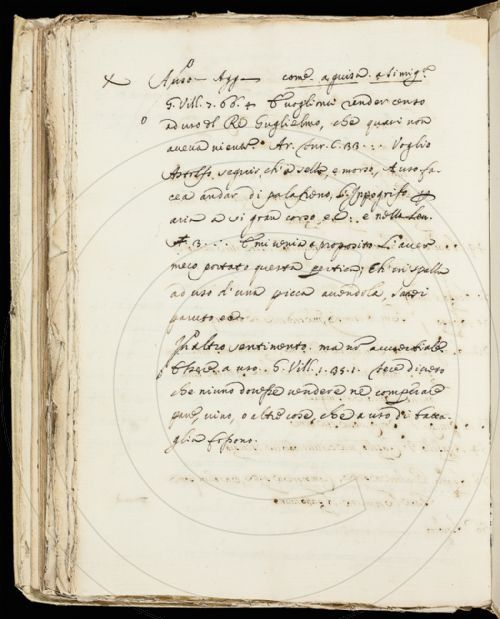 A uso Agg come a guisa a simig.
G. Vill. 7. 66. 4 E voglimi render censo
ad uso del Re Guglielmo, che quasi non
aveva niente Ar. Fur. C. 33 ... Voglio
Astolfo seguir, ch' a sella, e morso, A uso fa-
cea andar di palafreno, L' Ippogrifo
aria a si gran corso, ec: e nella
3 ... E mi venia a proposito L' aver
meco portato questa pertica; Ch' in spalla
ad uso d' una picca avendola, Sarei
paruto ec.
In altro sentimento. ma
Essere a uso. G. Vill. 1. 35. 1. fece divieto
che niuno dovesse vendere ne comperare
pane, vino, o altre cose, che a uso di batta-
glia fossono.